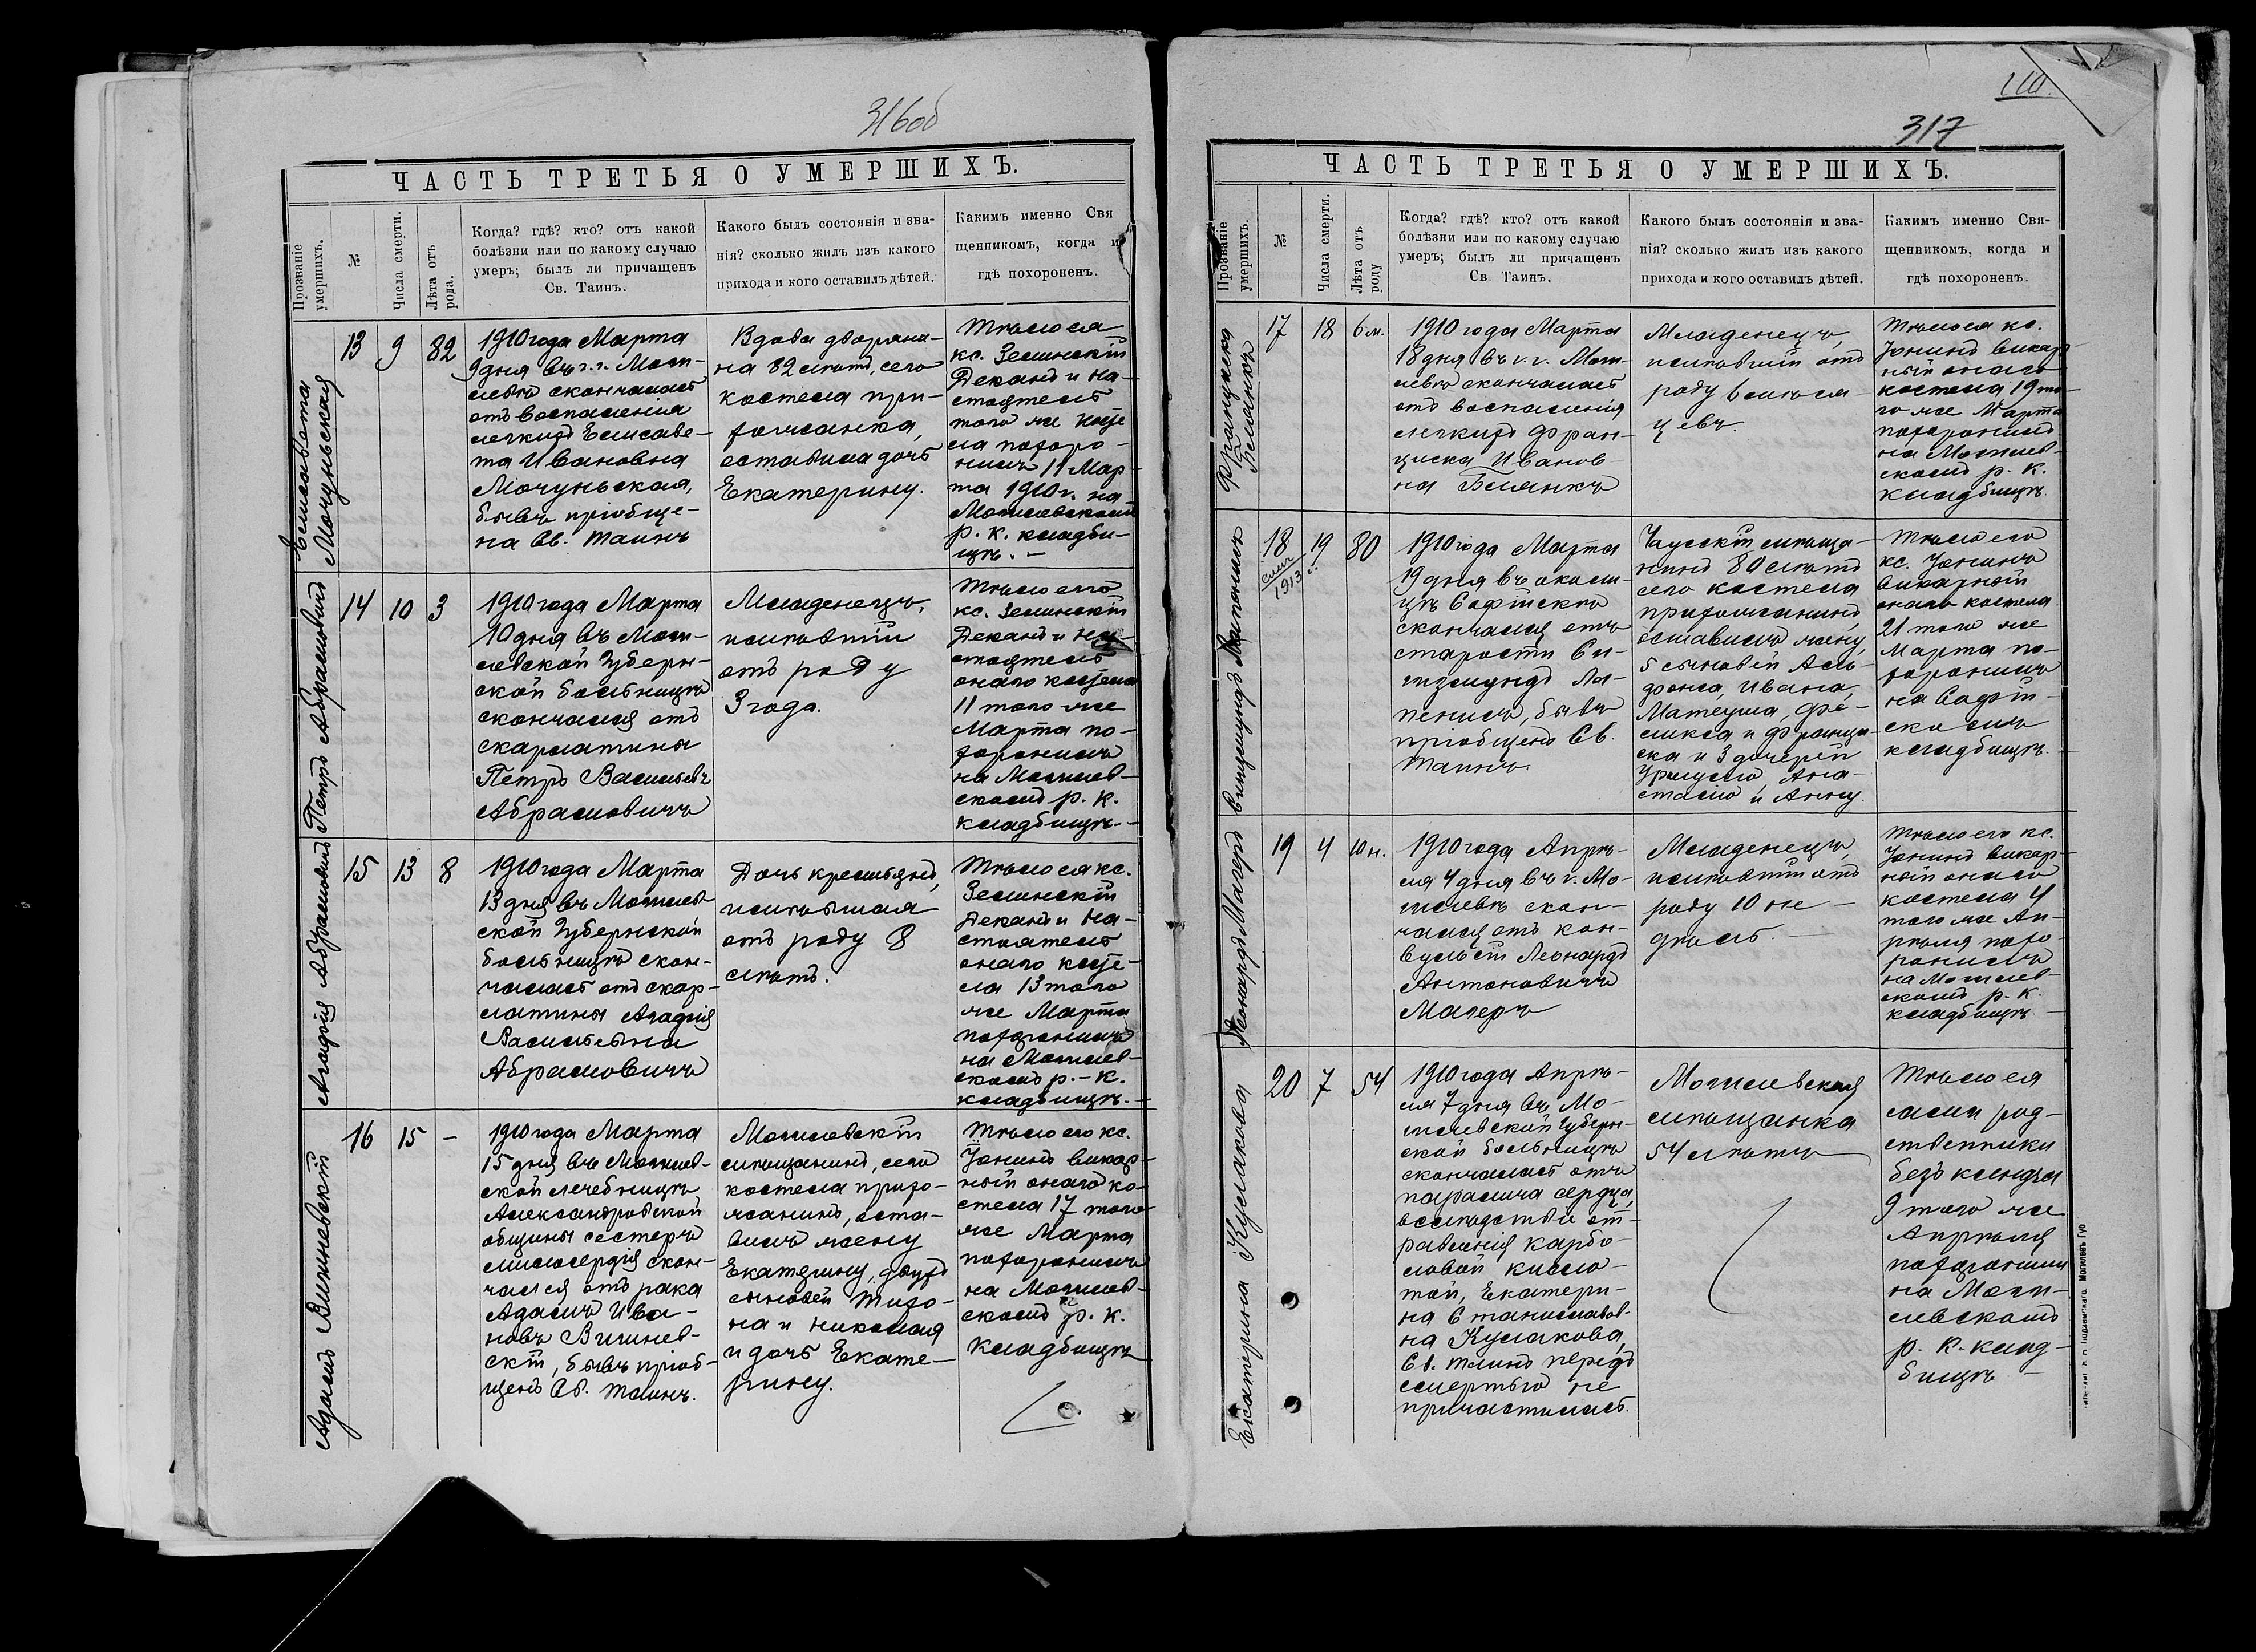 316об
ЧАСТЬ ТРЕТЬЯ О УМЕРШИХЪ.
Прозваніе умершихъ.
№
Числа смерти.
Лѣта отъ рода.
Когда? гдѣ? кто? отъ какой
болѣзни или по какому случаю
умеръ; былъ ли причащенъ
Св. Таинъ.
Какого былъ состоянія и зва-
нія? сколько жилъ изъ какого
прихода и кого оставилъ дѣтей.
Какимъ именно Свя
щенникомъ, когда и
гдѣ похороненъ.
Елисавета
Мочульская
13
9
82
1910 года Марта
9 дня въ г. г. Моги-
левѣ скончалась
отъ воспаленія
легкихъ Елисаве-
та Ивановна
Мочульская,
бывъ пріобще-
на Св. Таинъ
Вдова дворяни-
на 82 лѣтъ, сего
костела при-
хожанка,
оставила дочь
Екатерину.
Тѣло ея
кс. Зелинскій
Деканъ и На-
стоятель
того же косте
ла похоро-
нилъ 11 Мар-
та 1910 г. на
Могилевскомъ
р. к. кладби-
щѣ. —
Петръ Абрамовичъ
14
10
3
1910 года Марта
10 дня въ Моги-
левской Губерн-
ской больницѣ
скончался отъ
скарлатины
Петръ Васильевъ
Абрамовичъ
Младенецъ,
имѣвшій
отъ роду
3 года.
Тѣло его
кс. Зелинскій
Деканъ и На-
стоятель
онаго костела
11 того же
Марта по-
хоронилъ
на Могилев-
скомъ р. К.
кладбищѣ. —
Агафія Абрамовичъ
15
13
8
1910 года Марта
13 дня въ Могилев-
ской Губернской
больницѣ скон-
чалась отъ скар-
латины Агафія
Васильевна
Абрамовичъ
Дочь крестьянъ,
имѣвшая
отъ роду 8
лѣтъ.
Тѣло ея кс.
Зелинскій
Деканъ и На-
стоятель
онаго косте-
ла 13 того
же Марта
похоронилъ
на Могилев-
скомъ р. — К.
кладбищѣ. —
Адамъ Вишневскій
16
15
—
1910 года Марта
15 дня въ Могилев-
ской лечебницѣ
Александровской
общины сестеръ
милосердія скон-
чался отъ рака
Адамъ Ива-
новъ Вишнев-
скій, бывъ пріоб-
щенъ Св. Таинъ.
Могилевскій
мѣщанинъ, сего
костела прихо-
жанинъ, оста-
вилъ жену
Екатерину, двухъ
сыновей Тихо-
на и Николая
и дочь Екате-
рину.
Тѣло его кс.
Іонинъ викар-
ный онаго ко-
стела 17 того
же Марта
похоронилъ
на Могилев-
скомъ р. К.
Кладбищѣ
110.
317
ЧАСТЬ ТРЕТЬЯ О УМЕРШИХЪ.
Прозваніе умершихъ.
№
Числа смерти.
Лѣта отъ роду
Когда? гдѣ? кто? отъ какой
болѣзни или по какому случаю
умеръ; былъ ли причащенъ
Св Таинъ.
Какого былъ состоянія и зва-
нія? сколько жилъ изъ какого
прихода и кого оставилъ дѣтей.
Какимъ именно Свя-
щенникомъ, когда и
гдѣ похороненъ.
Франциска
17
18
6 м.
1910 года Марта
18 дня въ г. г. Моги-
левѣ скончалась
отъ воспаленія
легкихъ Фран-
циска Иванов-
на
Младенецъ,
имѣвшій отъ
роду 6 мѣся-
цевъ.
Тѣло ея кс.
Іонинъ викар-
ный онаго
костела 19 то-
го же Марта
похоронилъ
на Могилев-
скомъ р. К.
кладбищѣ.
Сигизмундъ
18
1913 г.
19
80
1910 года Марта
19 дня въ околи-
цѣ Софійскъ
скончался отъ
старости Си-
гизмундъ Ла-
, бывъ
пріобщенъ Св.
Таинъ.
Чаусскій мѣща-
нинъ 80 лѣтъ
сего костела
прихожанинъ,
оставилъ жену,
5 сыновей Аль-
фонса, Ивана,
Матеуша, Фе-
ликса и Францы-
ска и 3 дочерей
Уршулю, Ана-
стасію и Анну.
Тѣло его
кс. Іонинъ
викарный
онаго костела
21 того же
Марта по-
хоронилъ
на Софій-
скомъ
кладбищѣ. —
Леонардъ Магеръ
19
4
10 н.
1910 года Апрѣ-
ля 4 дня въ г. Мо-
гилевѣ скон-
чался отъ кон-
вульсій Леонардъ
Антоновичъ
Магеръ
Младенецъ,
имѣвшій отъ
роду 10 не-
дѣль. —
Тѣло его кс.
Іонинъ викар-
ный онаго
костела 4
того же Ап-
рѣля похо-
ронилъ
на Могилев-
скомъ р. К.
кладбищѣ —
Екатерина Кулакова
20
7
54
1910 года Апрѣ-
ля 7 дня въ Мо-
гилевской Губерн-
ской больницѣ
скончалась отъ
паралича сердца,
вслѣдствіе от-
равленія карбо-
ловой кисло-
той, Екатери-
на Станиславов-
на Кулакова,
Св. Таинъ передъ
смертью не
причастилась.
Могилевская
мѣщанка
54 лѣтъ
Тѣло ея
сами род-
ственники
безъ ксендза
9 того же
Апрѣля
похоронили
на Моги-
левскомъ
р. К. клад-
бищѣ —